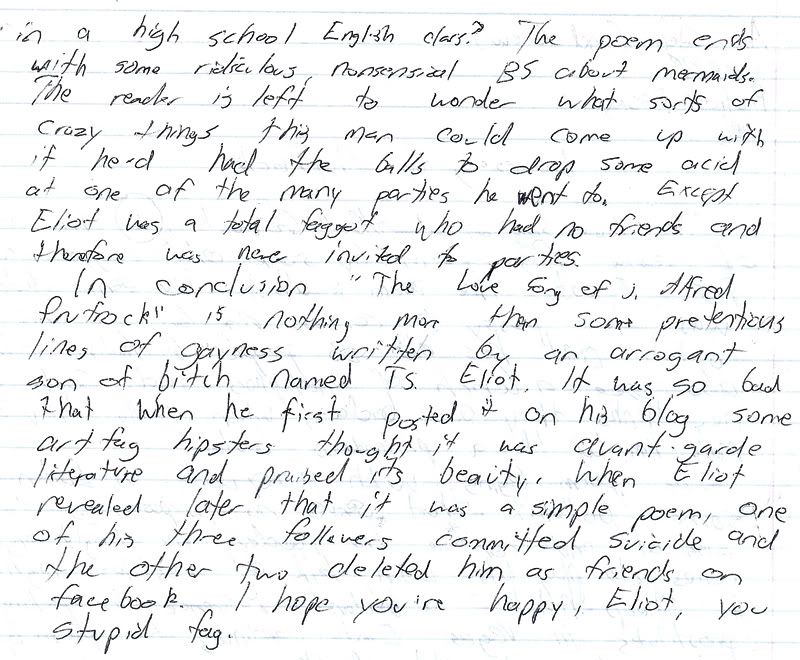 in a high school English class? The poem ends
with some ridiculous, nonsensical BS about mermaids.
The reader is left to wonder what sorts of
crazy things this man could come up with
if he'd had the balls to drop some acid
at one of the many parties he went to. Except
Eliot was a total faggot who had no friends and
therefore was never invited to parties.
In conclusion "The Love Song of J. Alfred
Prufrock" is nothing more than some pretentious
lines of gayness written by an arrogant
son of bitch named TS. Eliot. It was so bad
that when he first posted it on his blog some
art fag hipsters thought it was avant-garde
literature and praised its beauty. When Eliot
revealed later that it was a simple poem, one
of his three followers committed suicide and
the other two deleted him as friends on
facebook. I hope you're happy, Eliot, you
stupid fag.